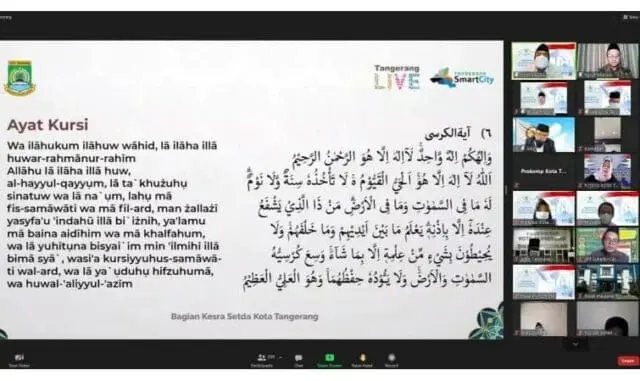 Tangerang
LIVE
TANGERANG
SmartCity
Ayat Kursi
Wa ilāhukum ilāhuw wāhid, lā ilāha illā
huwar-rahmānur-rahīm
Allāhu lā ilāha illā huw,
al-hayyul-qayyụm, lā ta`khużuhụ
sinatuw wa lā na`ụm, lahụ mā
fis-samāwāti wa mā fil-ard, man żallażī
yasyfa'u 'indahū illā bi`iżnih, ya'lamu
mā baina aidīhim wa mā khalfahum,
wa lā yuhitụna bisyai`im min 'ilmihī illā
bimā syā`, wasi'a kursiyyuhus-samāwā-
ti wal-ard, wa lā ya`ụduhụ hifzuhumā,
wa huwal-'aliyyul-'azīm
٦) آية الكرسى
وَاِلٰهُكُمْ اِلٰهٌ وَّاحِدٌ لَآاِلٰهَ اِلَّا هُوَ الرَّحْمٰنُ الرَّحِيْمُ
اَللّٰهُ لَآ اِلٰهَ اِلَّا هُوَۚ اَلْحَيُّ الْقَيُّوْمُ ەۚ لَا تَأْخُذُهٗ سِنَةٌ وَّلَا نَوْمٌۗ
لَهٗ مَا فِى السَّمٰوٰتِ وَمَا فِى الْاَرْضِۗ مَنْ ذَا الَّذِيْ يَشْفَعُ
عِنْدَهٗٓ اِلَّا بِاِذْنِهٖۗ يَعْلَمُ مَا بَيْنَ اَيْدِيْهِمْ وَمَا خَلْفَهُمْۚ وَلَا
يُحِيْطُوْنَ بِشَيْءٍ مِّنْ عِلْمِهٖٓ اِلَّا بِمَا شَاۤءَۚ وَسِعَ كُرْسِيُّهُ
السَّمٰوٰتِ وَالْاَرْضَۚ وَلَا يَـُٔوْدُهٗ حِفْظُهُمَاۚ وَهُوَ الْعَلِيُّ الْعَظِيْمُ
Bagian Kesra Setda Kota Tangerang
Prokomp Kota T...
View
Participants
Chat
Share Screen
Raise Hand
Record